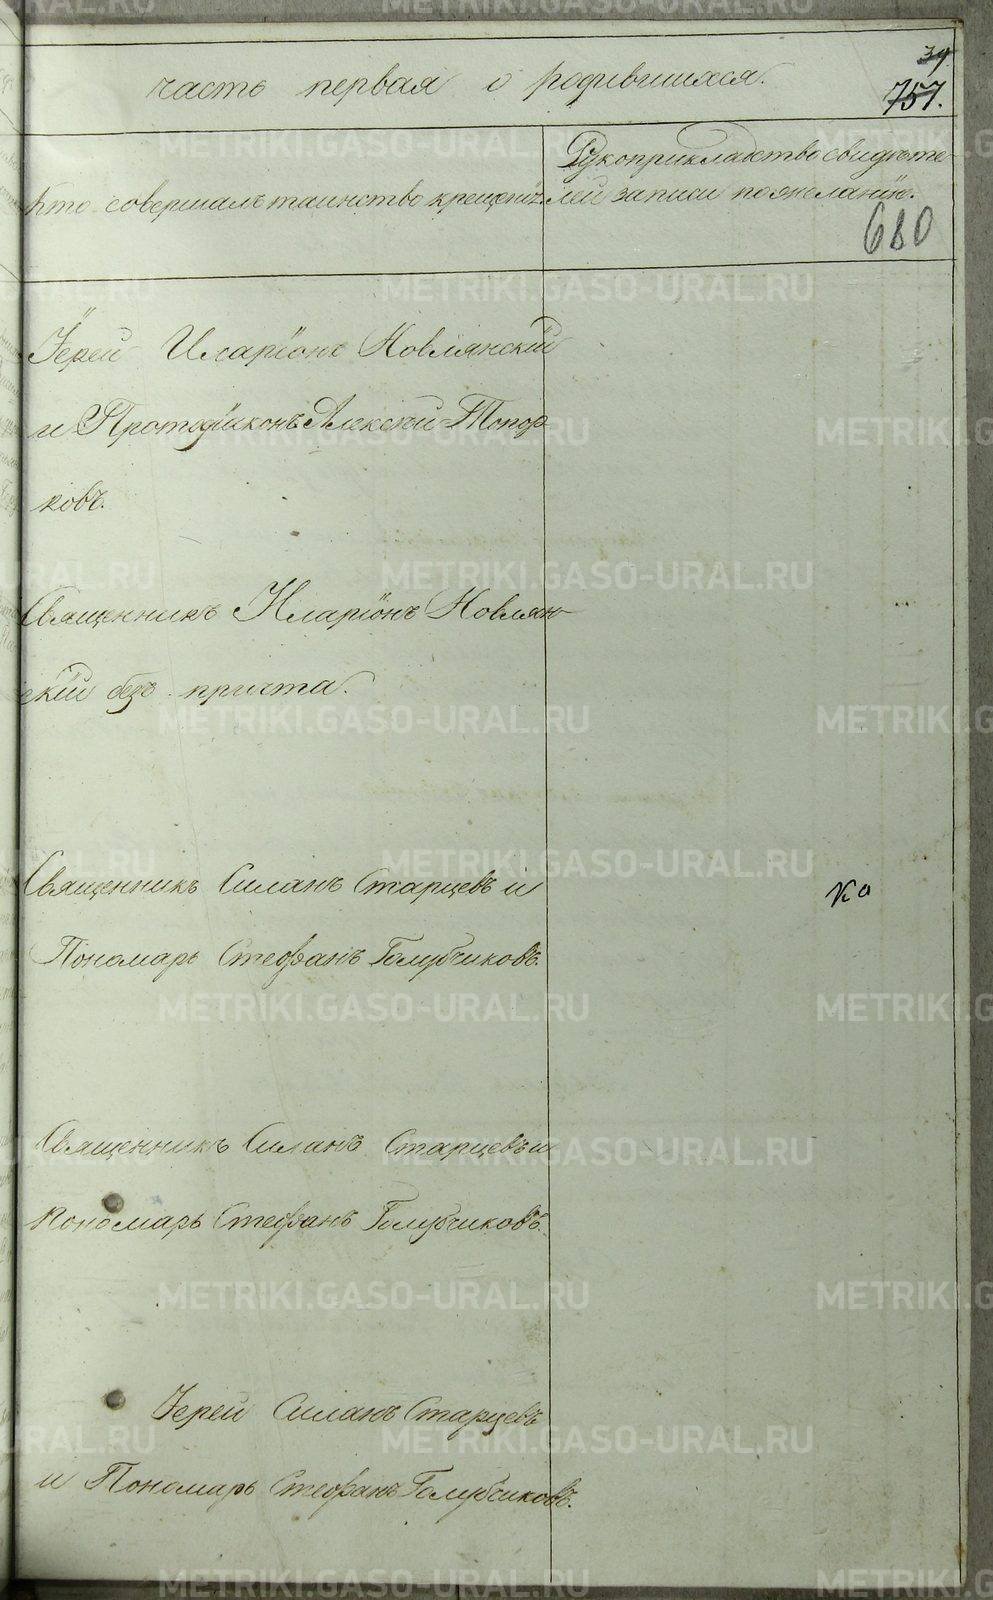 39
часть первая о родившихся.
757.
Кто совершалъ таинство крещенiя.
Рукоприкладство свидѣте-
лей записи по желанiю.
680
Iерей Иларiонъ Новлянскiй
и Протодiаконъ Алексѣй Топор
ковъ.
Священникъ Иларiонъ Новлян-
скiй безъ причта.
Священникъ Силанъ Старцевъ и
Пономарь Стефанъ Голубчиковъ.
Священникъ Силанъ Старцевъ и
пономарь Стефанъ Голубчиковъ.
Iерей Силанъ Старцевъ
и Пономарь Стефанъ Голубчиковъ.
METRIKI.GASO-URAL.RU